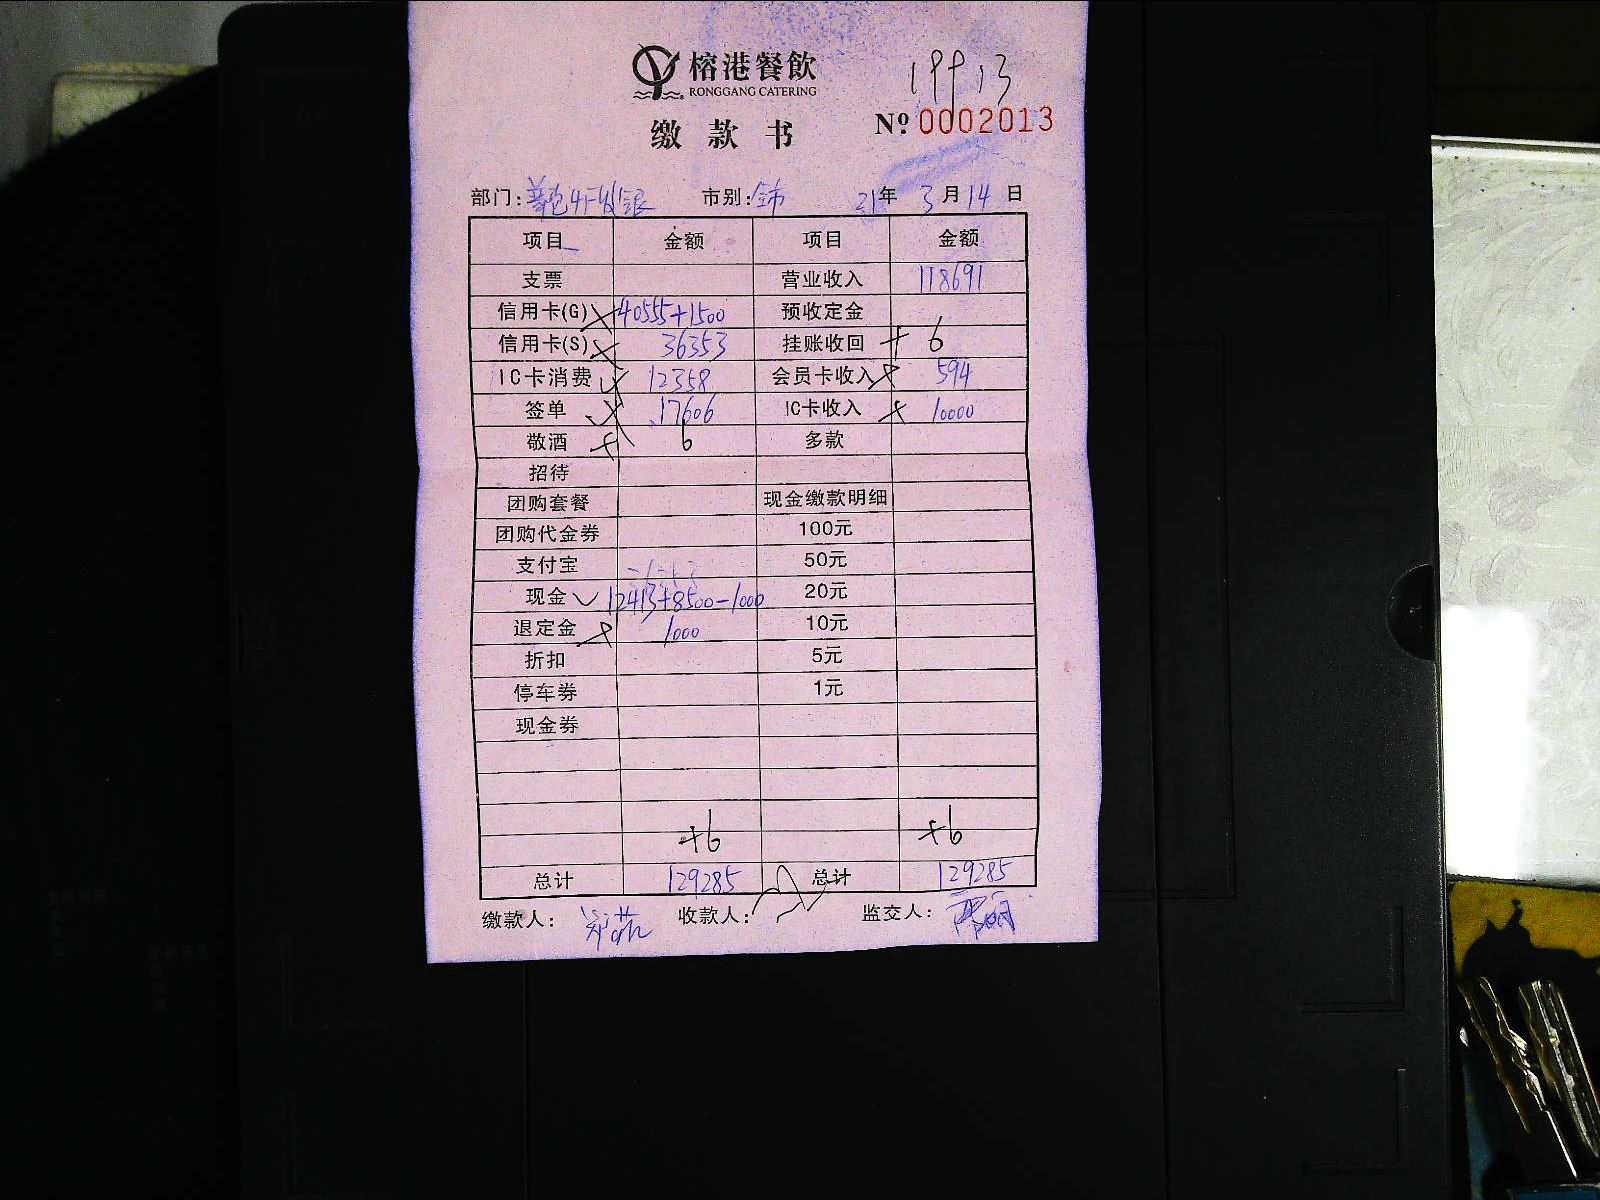 榕港餐飲
RONGGANG CATERING
19913
缴款书 Nº 0002013
部门: 市别:全市 21年 3月14日
项目 金额 项目 金额
支票 营业收入 118691
信用卡(G) 40555+1500 预收定金
信用卡(S) 36353 挂账收回 + 6
IC卡消费 12358 会员卡收入 594
签单 17606 IC卡收入 10000
敬酒 6 多款
招待
团购套餐 现金缴款明细
团购代金券 100元
支付宝 50元
现金 12413+8500-1000 20元
退定金 1000 10元
折扣 5元
停车券 1元
现金券
+6 +6
总计 129285 总计 129285
缴款人: 收款人: 监交人: